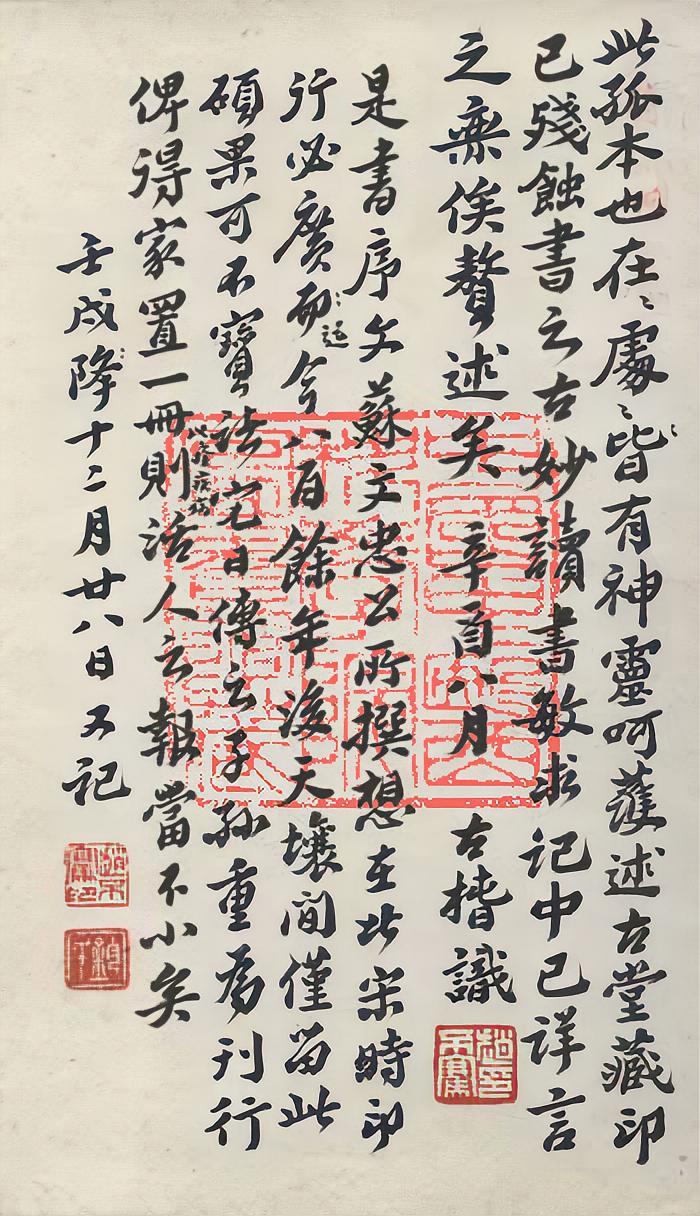 此孤本也在在處處皆有神靈呵護述古堂藏印
已殘蝕書之古妙讀書敏求記中已詳言
之無俟贅述矣 辛酉八月 古楷識
是書序文蘇文忠公所撰想在此宋時印
行必廣而迄今八百餘年後天壤間僅留此
碩果可不寶諸它日傳之子孫重為刊行
俾得家置一冊則活人之報當不小矣
壬戌降十二月廿八日又記